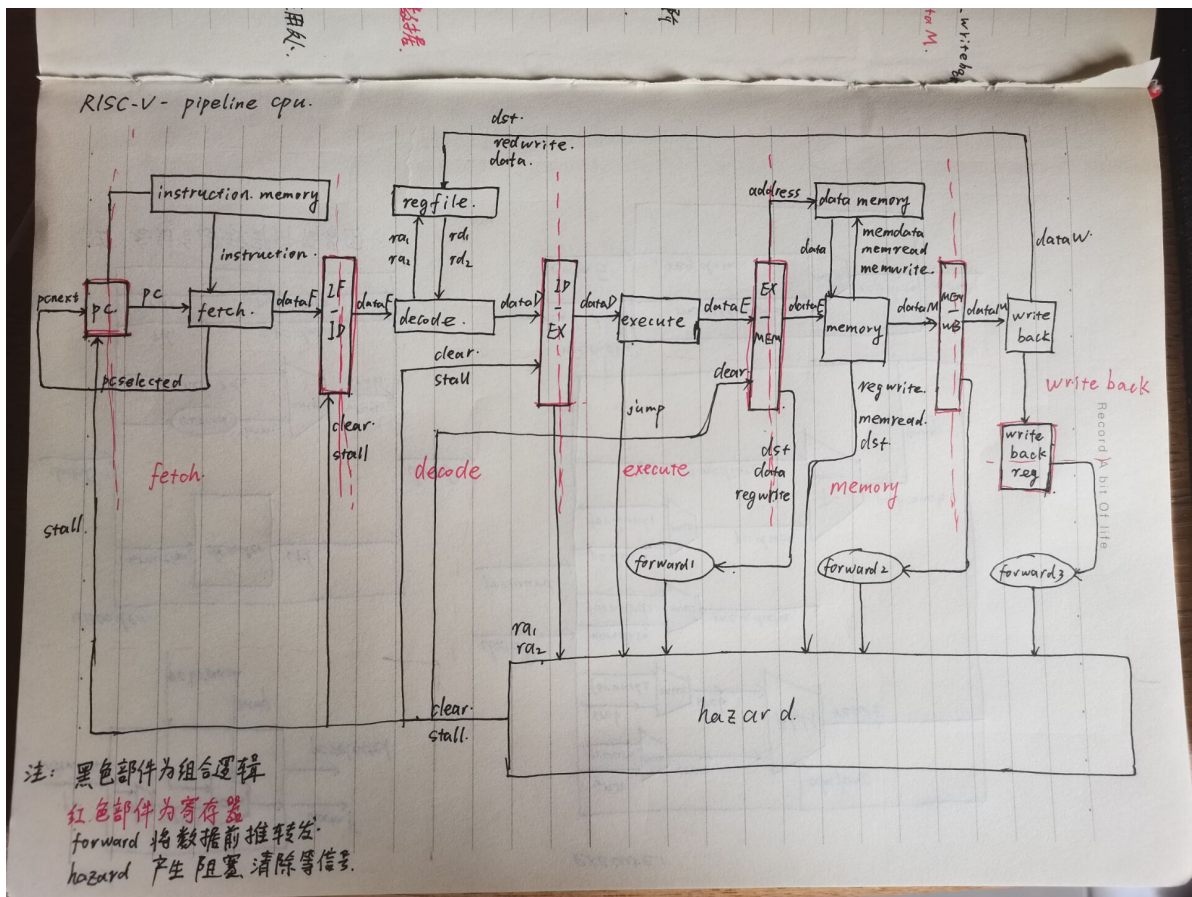 用处.
数据.
ta M.
writeba
RISC-V - pipeline cpu.
dst.
redwrite.
data.
instruction. memory
regfile.
address
data memory
ra1
ra2
rd1
rd2
instruction.
data
memdata
memread
memwrite.
dataW.
pcnext
pc
pc
fetch.
dataF
IF
-
ID
dataF
decode.
dataD
ID
-
EX
dataD
execute
dataE
EX
-
MEM
dataE
memory
dataM
MEM
-
WB
dataM
write
back
pcselected
clear.
stall
clear
clear.
stall
jump
regwrite.
memread.
dst.
write back
write
back
reg
fetch.
decode
execute
dst
data
regwrite
memory
Record A bit Of life
stall.
forward1
forward2
forward3
ra1
ra2
clear.
stall.
hazard.
注: 黑色部件为组合逻辑
红色部件为寄存器
forward 将数据前推转发.
hazard 产生阻塞清除等信号.